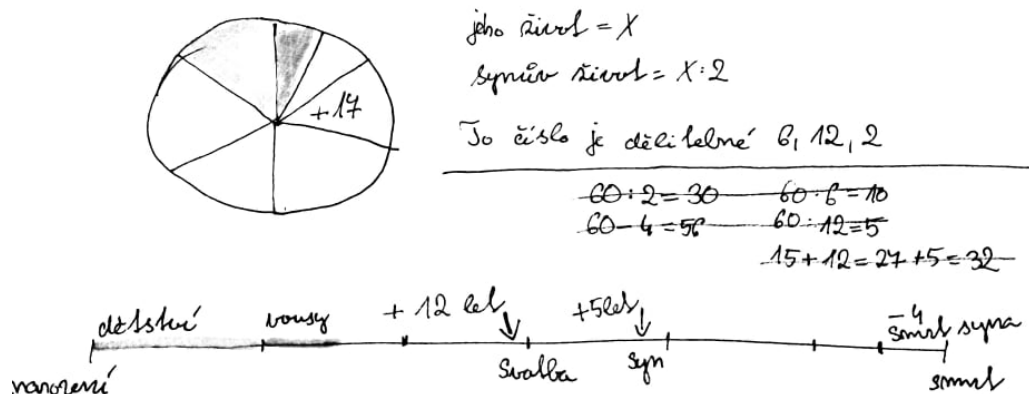 jeho život = X
synův život = X:2
+17
To číslo je dělitelné 6, 12, 2
60:2=30 60:6=10
60-4=56 60:12=5
15+12=27+5=32
dětství vousy + 12 let +5let -4
smrt syna
narození Svatba syn smrt